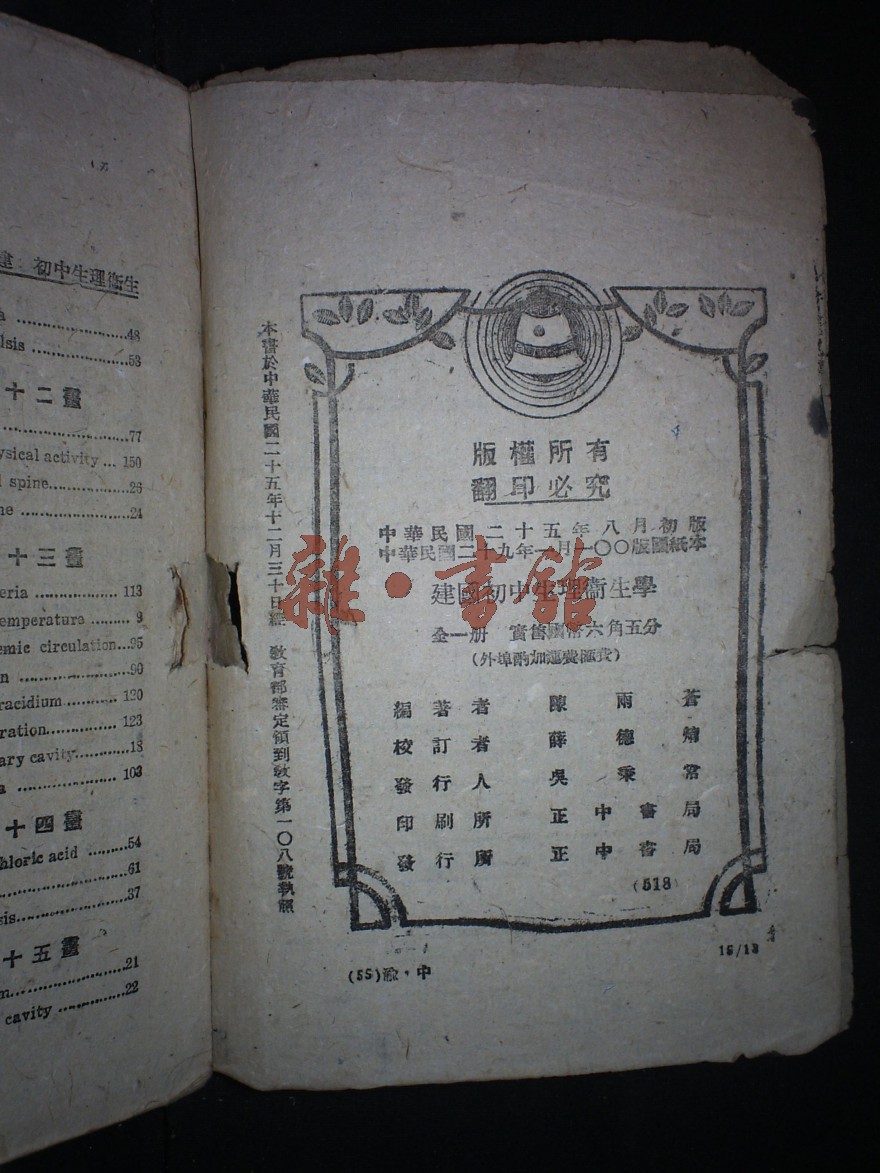 初中生理衞生
48
lsis 53
十二畫
77
ysical activity 150
l spine 26
ne 24
十三畫
eria 113
temperature 9
emic circulation 95
n 90
racidium 120
ration 123
ary cavity 18
a 103
十四畫
hloric acid 54
61
sis 37
十五畫
m 21
cavity 22
本書於中華民國二十五年十二月三十日經 教育部審定領到教字第一〇八號執照
版權所有
翻印必究
中華民國二十五年八月初版
中華民國二十九年一月一〇〇版國紙本
建國初中生理衞生學
全一册 實售國幣六角五分
(外埠酌加運費匯費)
編著者 陳雨蒼
校訂者 薛德焴
發行人 吳秉常
印刷所 正中書局
發行所 正中書局
(518)
(55)渝·中
15/13
雜·書館